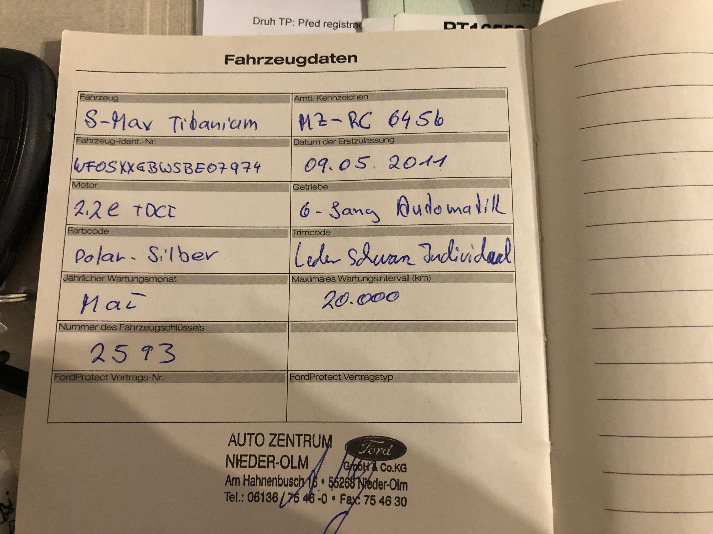 Druh TP: Před registrac
Fahrzeugdaten
Fahrzeug
S-Max Titanium
Amtl. Kennzeichen
MZ-RC 6456
Fahrzeug-Ident.-Nr.
WF0SXXGBWSBE07974
Datum der Erstzulassung
09.05.2011
Motor
2.2l TDCI
Getriebe
6-Gang Automatik
Farbcode
Polar-Silber
Trimcode
Leder Schwarz Individual
Jährlicher Wartungsmonat
Mai
Maximales Wartungsintervall (km)
20.000
Nummer des Fahrzeugschlüssels
2593
FordProtect Vertrags-Nr.
FordProtect Vertragstyp
AUTO ZENTRUM
Ford
NIEDER-OLM
GmbH & Co.KG
Am Hahnenbusch 16 • 55268 Nieder-Olm
Tel.: 06136 / 75 46 -0 • Fax: 75 46 30